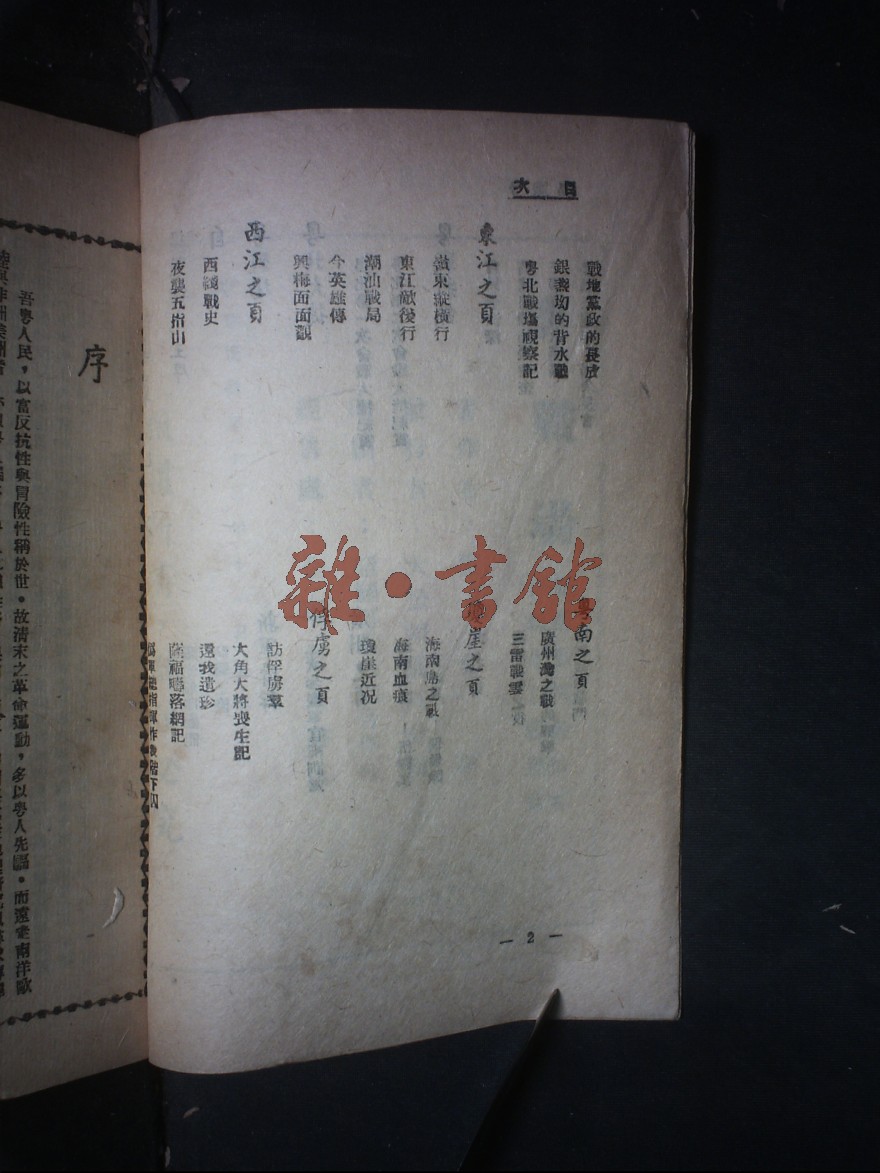 目次
戰地黨政的長成
銀盞坳的背水戰
粵北戰場視察記
東江之頁
嶺東縱橫行
東江敵後行
潮汕戰局
今英雄傳
興梅面面觀
西江之頁
西綫戰史
夜襲五指山
南之頁
廣州灣之戰
三雷戰雲
崖之頁
海南島之戰
海南血痕
瓊崖近况
俘虜之頁
訪俘虜羣
大角大將喪生記
還我遺珍
落網記
階下囚
— 2 —
雜·書館
序
吾粵人民，以富反抗性與冒險性稱於世。故清末之革命運動，多以粵人先驅。而遠棄南洋歐